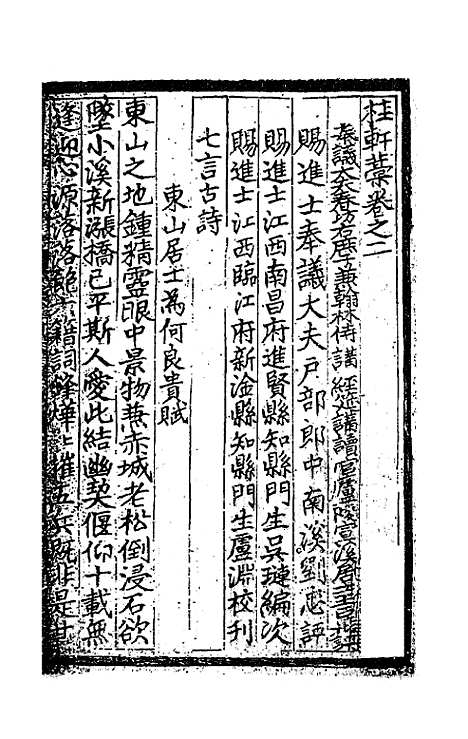 桂軒藁卷之二
奉議大夫春坊右庶子兼翰林侍講經筵講讀官廬陵宣溪周
賜進士奉議大夫戶部郎中南溪劉忠評
賜進士江西南昌府進賢縣知縣門生吳璉編次
賜進士江西臨江府新淦縣知縣門生盧淵校刊
七言古詩
東山居士為何良貴賦
東山之地鍾精靈眼中景物兼赤城老松倒浸石欲
墜小溪新漲橋已平斯人愛此結幽契偃仰十載無
逢迎心源落落